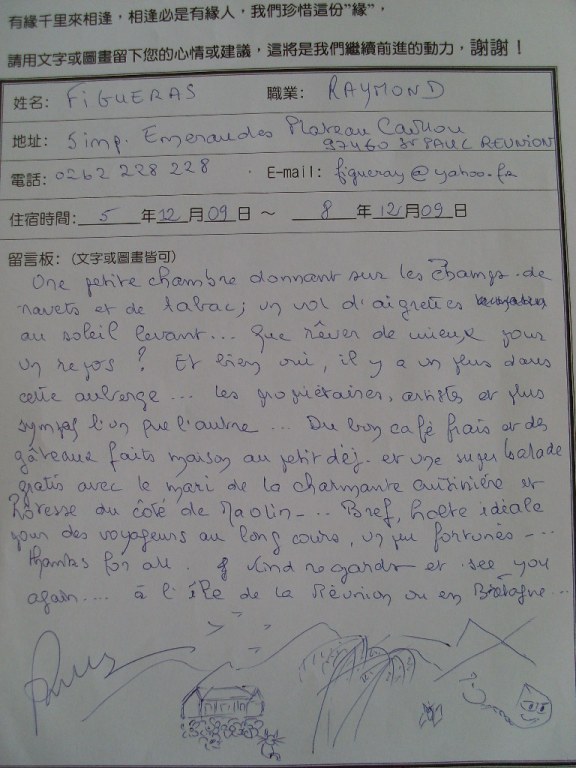 有緣千里來相逢，相逢必是有緣人，我們珍惜這份"緣"，
請用文字或圖畫留下您的心情或建議，這將是我們繼續前進的動力，謝謝！
姓名: FIGUERAS 職業: RAYMOND
地址: 5 imp. Emeraudes Plateau Caillou
97460 St PAUL REUNION
電話: 0262 228 228 E-mail: figueray@yahoo.fr
住宿時間: 5 年 12 月 09 日 ～ 8 年 12 月 09 日
留言板: (文字或圖畫皆可)
Une petite chambre donnant sur les champs de
navets et de tabac; un vol d'aigrettes
au soleil levant... Que rêver de mieux pour
un repos ? Et bien oui, il y a un plus dans
cette auberge ... les propriétaires, artistes et plus
sympas l'un que l'autre ... Du bon café frais et des
gâteaux faits maison au petit déj. et une super balade
gratis avec le mari de la charmante cuisinière et
hôtesse du côté de Maolin... Bref, halte idéale
pour des voyageurs au long cours, un peu fortunés ...
thanks for all. kind regards et see you
again.... à l'île de la Réunion ou en Bretagne...